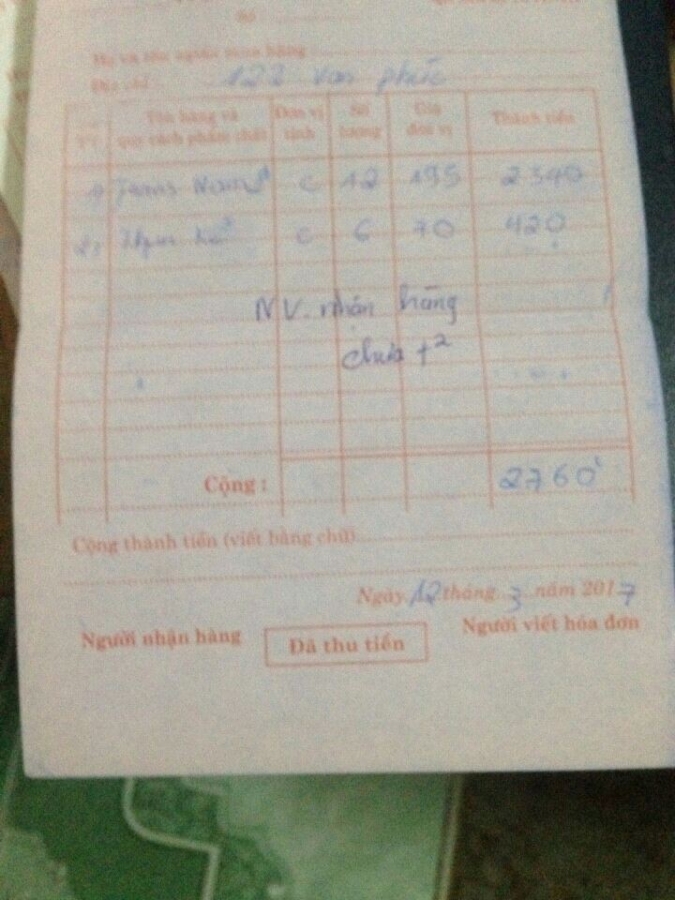 Số
Họ và tên người mua hàng
Địa chỉ 122 vạn phúc
TT Tên hàng và quy cách phẩm chất Đơn vị tính Số lượng Giá đơn vị Thành tiền
1 Jeans Nam C 12 195 2340
2, C 6 70 420
NV. nhận hàng
chưa t²
Cộng : 2760
Cộng thành tiền (viết bằng chữ)
Ngày 12 tháng 3 năm 2017
Người nhận hàng Đã thu tiền Người viết hóa đơn